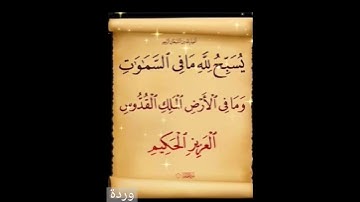 يُسَبِّحُ لِلَّهِ مَا فِى ٱلسَّمَٰوَٰتِ
وَمَا فِى ٱلْأَرْضِ ٱلْمَلِكِ ٱلْقُدُّوسِ
ٱلْعَزِيزِ ٱلْحَكِيمِ
وردة